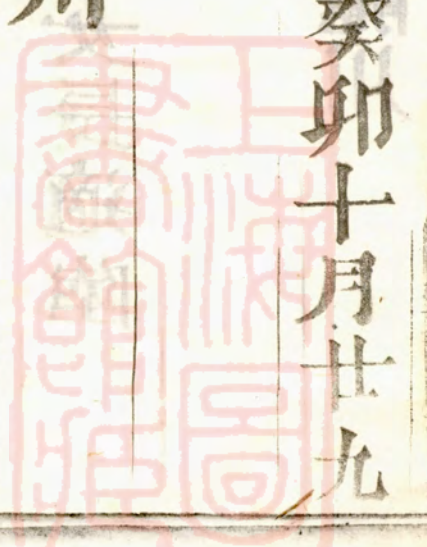 癸卯十月廿九
上海圖
書館藏